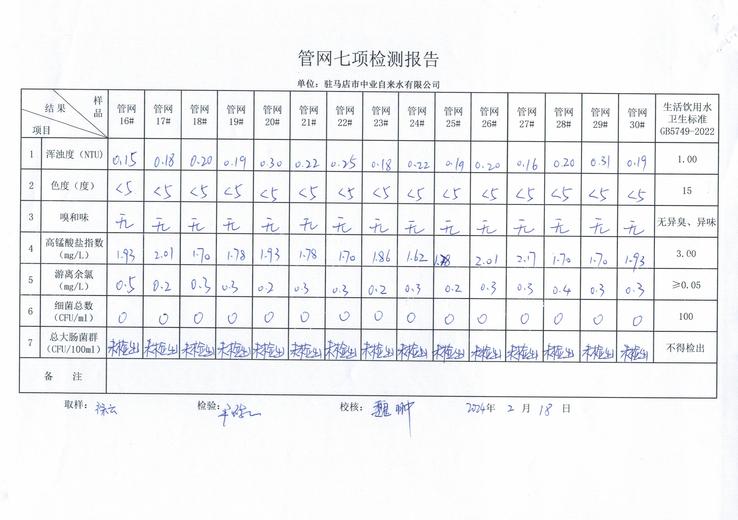 管网七项检测报告
单位：驻马店市中业自来水有限公司
结果 样品 项目 管网16# 管网17# 管网18# 管网19# 管网20# 管网21# 管网22# 管网23# 管网24# 管网25# 管网26# 管网27# 管网28# 管网29# 管网30# 生活饮用水卫生标准GB5749-2022
1 浑浊度（NTU） 0.15 0.18 0.20 0.19 0.30 0.22 0.25 0.18 0.22 0.19 0.20 0.16 0.20 0.31 0.19 1.00
2 色度（度） <5 <5 <5 <5 <5 <5 <5 <5 <5 <5 <5 <5 <5 <5 <5 15
3 嗅和味 无 无 无 无 无 无 无 无 无 无 无 无 无 无 无 无异臭、异味
4 高锰酸盐指数（mg/L） 1.93 2.01 1.70 1.78 1.93 1.78 1.70 1.86 1.62 2.01 2.17 1.70 1.70 1.93 3.00
5 游离余氯（mg/L） 0.5 0.2 0.3 0.3 0.2 0.3 0.3 0.2 0.3 0.2 0.3 0.3 0.4 0.3 0.3 ≥0.05
6 细菌总数（CFU/ml） 0 0 0 0 0 0 0 0 0 0 0 0 0 0 0 100
7 总大肠菌群（CFU/100ml） 未检出 未检出 未检出 未检出 未检出 未检出 未检出 未检出 未检出 未检出 未检出 未检出 未检出 未检出 未检出 不得检出
备 注
取样： 检验： 校核： 2024年 2 月 18 日